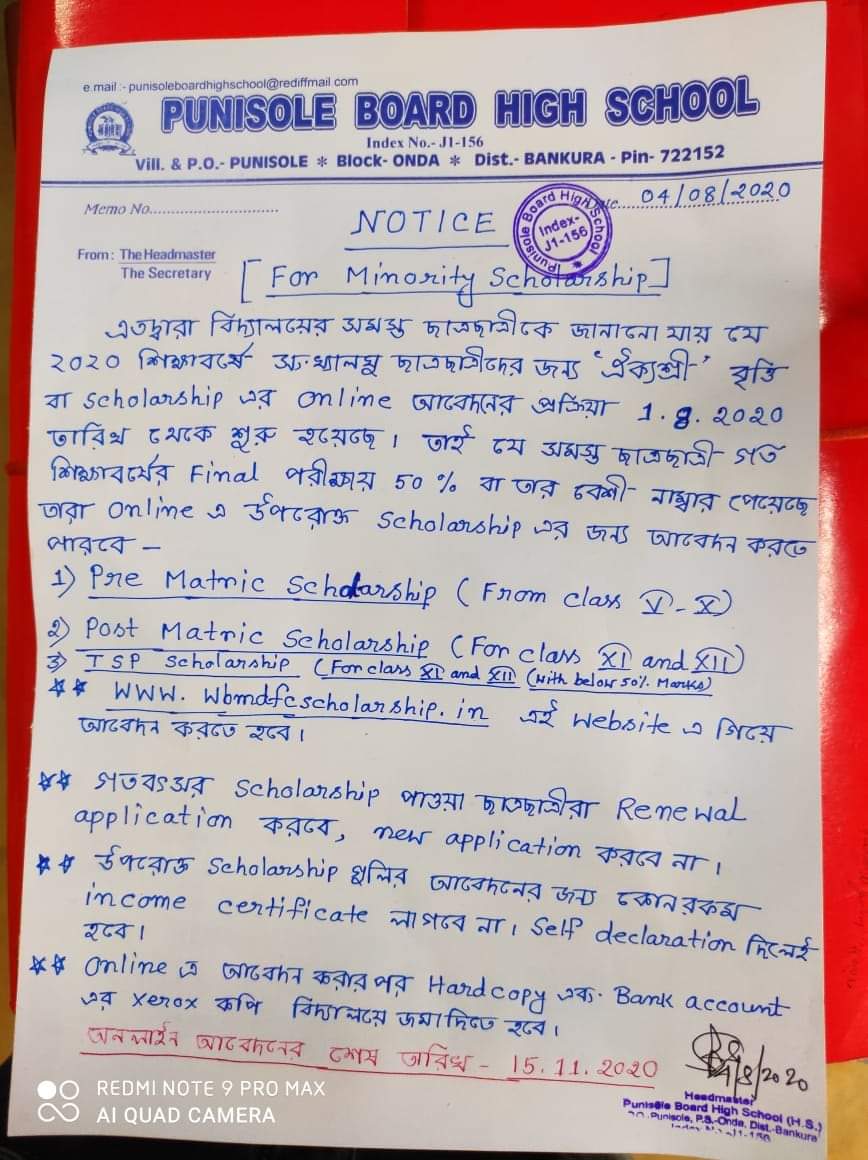 e.mail :- punisoleboardhighschool@rediffmail.com
PUNISOLE BOARD HIGH SCHOOL
Index No.- J1-156
Vill. & P.O.- PUNISOLE * Block- ONDA * Dist.- BANKURA - Pin- 722152
Memo No.............................
Date.....04/08/2020
NOTICE
Punisole Board High School
Index-
J1-156
From : The Headmaster
The Secretary
[For Minority Scholarship]
এতদ্বারা বিদ্যালয়ের সমস্ত ছাত্রছাত্রীকে জানানো যায় যে
2020 শিক্ষাবর্ষে সংখ্যালঘু ছাত্রছাত্রীদের জন্য 'ঐক্যশ্রী' বৃত্তি
বা Scholarship এর Online আবেদনের প্রক্রিয়া 1.8.2020
তারিখ থেকে শুরু হয়েছে। তাই যে সমস্ত ছাত্রছাত্রী গত
শিক্ষাবর্ষের Final পরীক্ষায় 50% বা তার বেশী নাম্বার পেয়েছে
তারা Online এ উপরোক্ত Scholarship এর জন্য আবেদন করতে
পারবে —
1) Pre Matric Scholarship (From class V-X)
2) Post Matric Scholarship (For class XI and XII)
3) TSP Scholarship (For class XI and XII (with below 50% Marks)
** www. wbmdfcscholarship.in এই website এ গিয়ে
আবেদন করতে হবে।
** গতবৎসর Scholarship পাওয়া ছাত্রছাত্রীরা Renewal
application করবে, new application করবে না।
** উপরোক্ত Scholarship গুলির আবেদনের জন্য কোনরকম
income certificate লাগবে না। Self declaration দিলেই
হবে।
** Online এ আবেদন করার পর Hardcopy এবং Bank account
এর Xerox কপি বিদ্যালয়ে জমা দিতে হবে।
অনলাইন আবেদনের শেষ তারিখ - 15.11.2020
4/8/2020
Headmaster
Punisole Board High School (H.S.)
P.O.-Punisole, P.S.-Onda, Dist.-Bankura
Index No.-J1-156
REDMI NOTE 9 PRO MAX
AI QUAD CAMERA